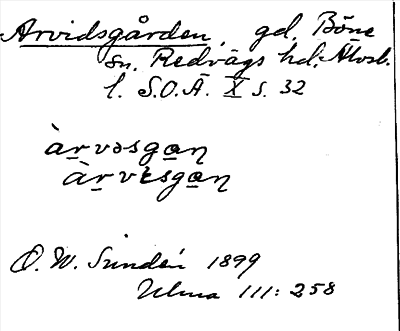 Arvidsgården, gd. Böne
sn. Redvägs hd. Älvsb.
l. S.O.Ä. X s. 32
àrvəsgaɳ
àrvɩsgaɳ
O. W. Sundén 1899
Ulma 111:258